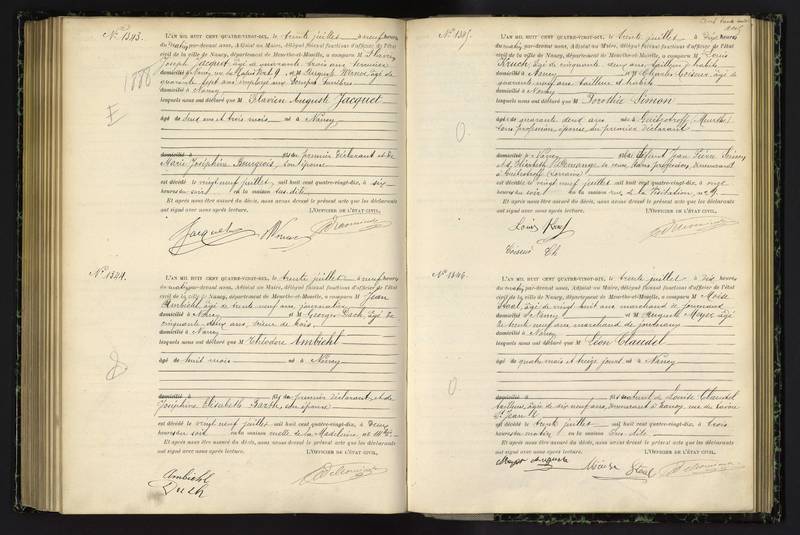 N° 1343.
L'AN MIL HUIT CENT QUATRE-VINGT-DIX, le trente juillet à neuf heures
du matin, par-devant nous, Adjoint au Maire, délégué faisant fonctions d'officier de l'état
civil de la ville de Nancy, département de Meurthe-et-Moselle, a comparu M Flavien
Joseph Jacquet, âgé de quarante trois ans
domicilié à Nancy, et M Auguste âgé de
quarante sept ans, employé aux Pompes funèbres
domicilié à Nancy
lesquels nous ont déclaré que M Flavien Auguste Jacquet
âgé de deux ans et trois mois né à Nancy
domicilié à fils du premier déclarant et de
Marie Joséphine Bourgeois, son épouse
est décédé le vingt neuf juillet, mil huit cent quatre-vingt-dix, à six
heures du soir en la maison sus-dite
Et après nous être assuré du décès, nous avons dressé le présent acte que les déclarants
ont signé avec nous après lecture. L'OFFICIER DE L'ÉTAT-CIVIL,
Jacquet
N° 1344.
L'AN MIL HUIT CENT QUATRE-VINGT-DIX, le trente juillet à neuf heures
du matin, par-devant nous, Adjoint au Maire, délégué faisant fonctions d'officier de l'état
civil de la ville de Nancy, département de Meurthe-et-Moselle, a comparu M Jean
Ambiehl, âgé de trente neuf ans, journalier
domicilié à Nancy et M Georges Dach, âgé de
cinquante deux ans, scieur de bois,
domicilié à Nancy
lesquels nous ont déclaré que M Théodore Ambiehl
âgé de huit mois né à Nancy
domicilié à fils du premier déclarant et de
Joséphine Elisabeth Barth, son épouse
est décédé le vingt neuf juillet, mil huit cent quatre-vingt-dix, à deux
heures du soir en la maison ruelle de la Madeleine,
Et après nous être assuré du décès, nous avons dressé le présent acte que les déclarants
ont signé avec nous après lecture. L'OFFICIER DE L'ÉTAT-CIVIL,
Ambiehl
N° 1345.
L'AN MIL HUIT CENT QUATRE-VINGT-DIX, le trente juillet à dix heures
du matin, par-devant nous, Adjoint au Maire, délégué faisant fonctions d'officier de l'état
civil de la ville de Nancy, département de Meurthe-et-Moselle, a comparu M Louis
âgé de cinquante deux ans, tailleur d'habits
domicilié à Nancy et M Charles âgé de
quarante neuf ans tailleur d'habits
domicilié à Nancy
lesquels nous ont déclaré que M Dorothée Simon
âgée de quarante deux ans née à (Meurthe)
sans profession, épouse du premier déclarant
domiciliée à Nancy fille de défunt Jean Pierre Simon
et d'Elisabeth sa veuve sans profession, demeurant
à (Lorraine)
est décédée le vingt neuf juillet mil huit cent quatre-vingt-dix, à onze
heures du soir en la maison rue de la Visitation,
Et après nous être assuré du décès, nous avons dressé le présent acte que les déclarants
ont signé avec nous après lecture. L'OFFICIER DE L'ÉTAT-CIVIL,
Louis
N° 1346.
L'AN MIL HUIT CENT QUATRE-VINGT-DIX, le trente juillet à dix heures
du matin, par-devant nous, Adjoint au Maire, délégué faisant fonctions d'officier de l'état
civil de la ville de Nancy, département de Meurthe-et-Moselle, a comparu M Moïse
âgé de vingt huit ans marchand de journaux
domicilié à Nancy et M Auguste Mayer âgé
de trente neuf ans marchand de journaux
domicilié à Nancy
lesquels nous ont déclaré que M Léon Claudel
âgé de quatre mois et treize jours né à Nancy
domicilié à fils naturel de Louise Claudel
tailleuse, âgée de dix neuf ans, demeurant à Nancy, rue du faub.
St Jean
est décédé le trente juillet mil huit cent quatre-vingt-dix, à trois
heures du matin en la maison sus-dite
Et après nous être assuré du décès, nous avons dressé le présent acte que les déclarants
ont signé avec nous après lecture. L'OFFICIER DE L'ÉTAT-CIVIL,
Mayer Auguste Moïse